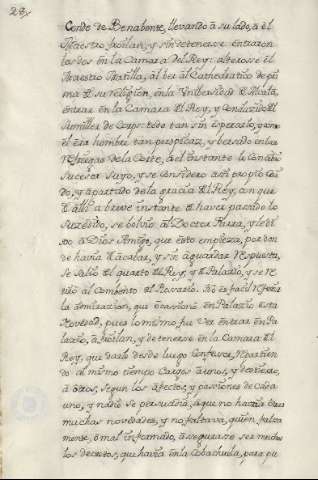 23,,
Conde de Benabente, llevando à su lado, à el
Maestro froilan, y sin detenerse entraron
los dos en la Camara del Rey: alterose el
Maestro Matilla, al ber al Cathedratico de pri
ma de su religion, en la Vnibersidad de Alcalà,
entrar en la Camara del Rey, y conducido del
Sumiller de Corps: todo tan sin esperarlo, y como
el era hombre tan perspicaz, y bersado en las
de la Corte, à el instante le
Sucesor suyo, y se considerò assi propio
do, y apartado de la gracia del Rey, con que
de alli à brebe instante de haver pasado lo
Suzedido, se bolviò al Doctor Parra, y le di
xo à Dios Amigo, que esto empieza, por don
de havia de acabar, y sin aguardar respuesta,
se saliò del quarto del Rey, y de Palazio, y se re
tirò al Combento del Rosario. No es facil
la admirazion, que ocasionò en Palazio esta
Novedad, pues lo mismo fue ver entrar en Pa
lazio, à froilan, y detenerse en la Camara del
Rey, que darlo desde luego Confesor,
do al mismo tiempo Cargos à unos, y
à otros, segun los afectos, y pasiones de cada
uno, y nadie se persuadia, à que no havria
muchas novedades, y no faltava, quien falsa
mente, ò mal informado, asegurase ser muchos
los decretos, que havia en la Cobachuela, para pu